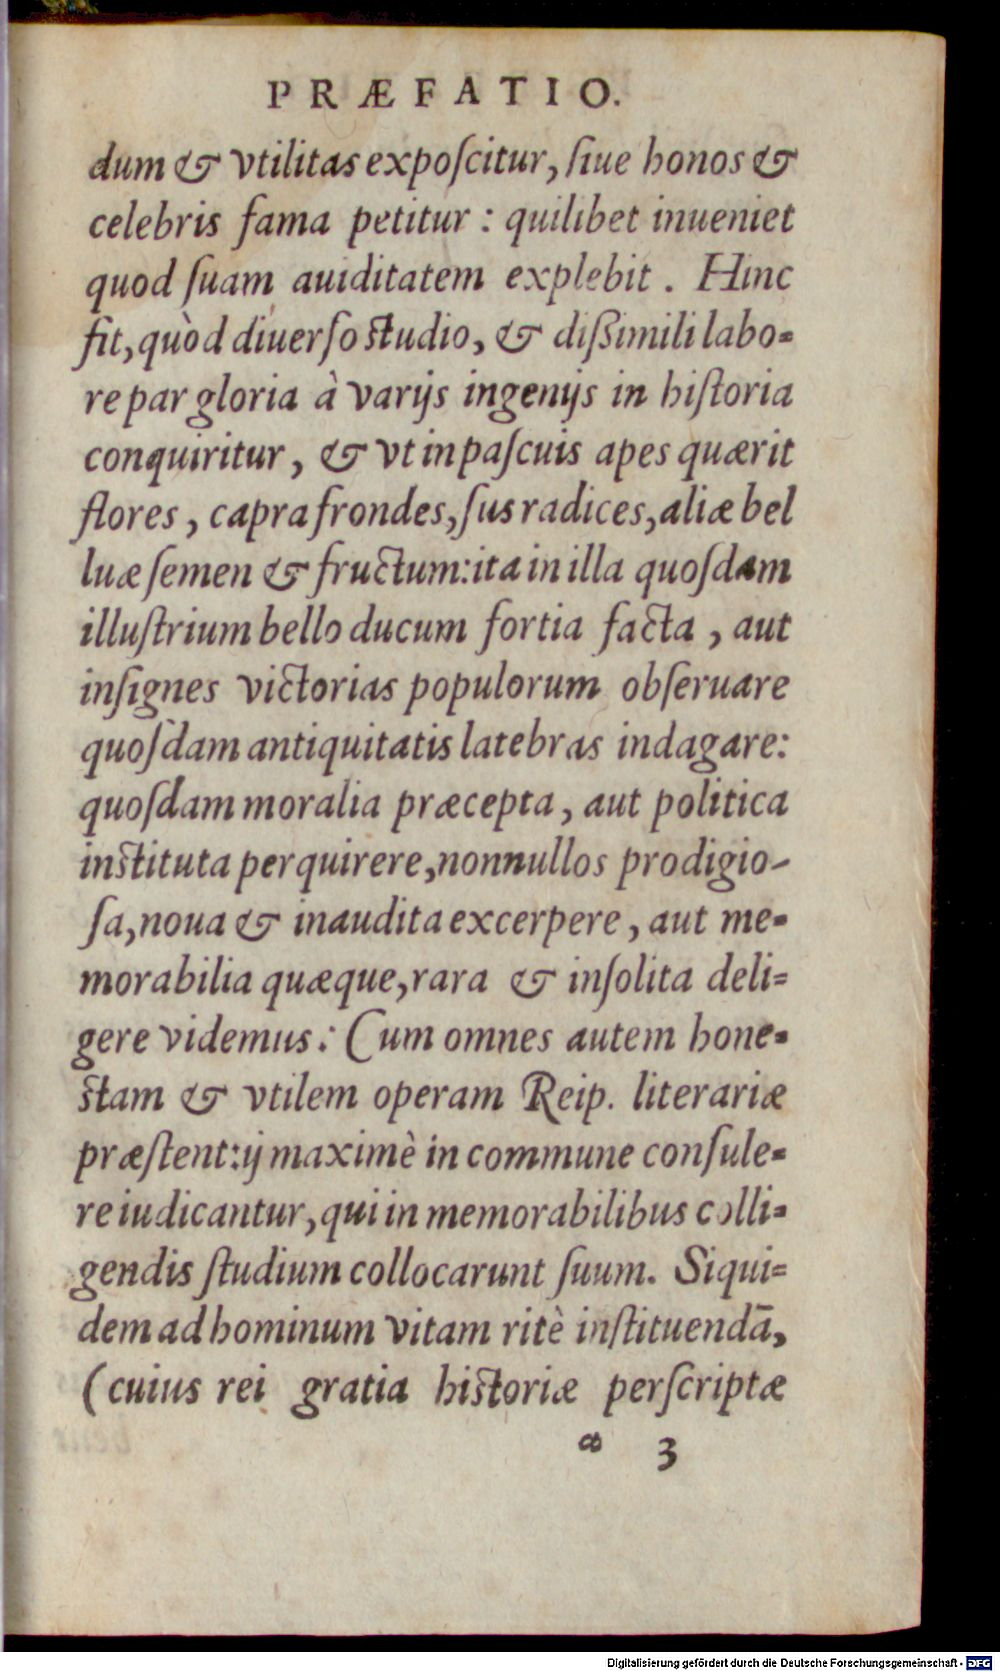 PRÆFATIO.
dum & vtilitas expoſcitur, ſiue honos &
celebris fama petitur : quilibet inueniet
quod ſuam auiditatem explebit . Hinc
fit, quòd diuerſo ſtudio, & diſſimili labo-
re par gloria à varijs ingenijs in hiſtoria
conquiritur, & vt in paſcuis apes quærit
flores, capra frondes, ſus radices, aliæ bel
luæ ſemen & fructum: ita in illa quoſdam
illuſtrium bello ducum fortia facta, aut
inſignes victorias populorum obſeruare
quoſdam antiquitatis latebras indagare:
quoſdam moralia præcepta, aut politica
inſtituta perquirere, nonnullos prodigio-
ſa, noua & inaudita excerpere, aut me-
morabilia quæque, rara & inſolita deli-
gere videmus: Cum omnes autem hone-
ſtam & vtilem operam Reip. literariæ
præſtent: ij maximè in commune conſule-
re iudicantur, qui in memorabilibus colli-
gendis ſtudium collocarunt ſuum. Siqui-
dem ad hominum vitam ritè inſtituendā,
(cuius rei gratia hiſtoriæ perſcriptæ
a 3
Digitalisierung gefördert durch die Deutsche Forschungsgemeinschaft - DFG